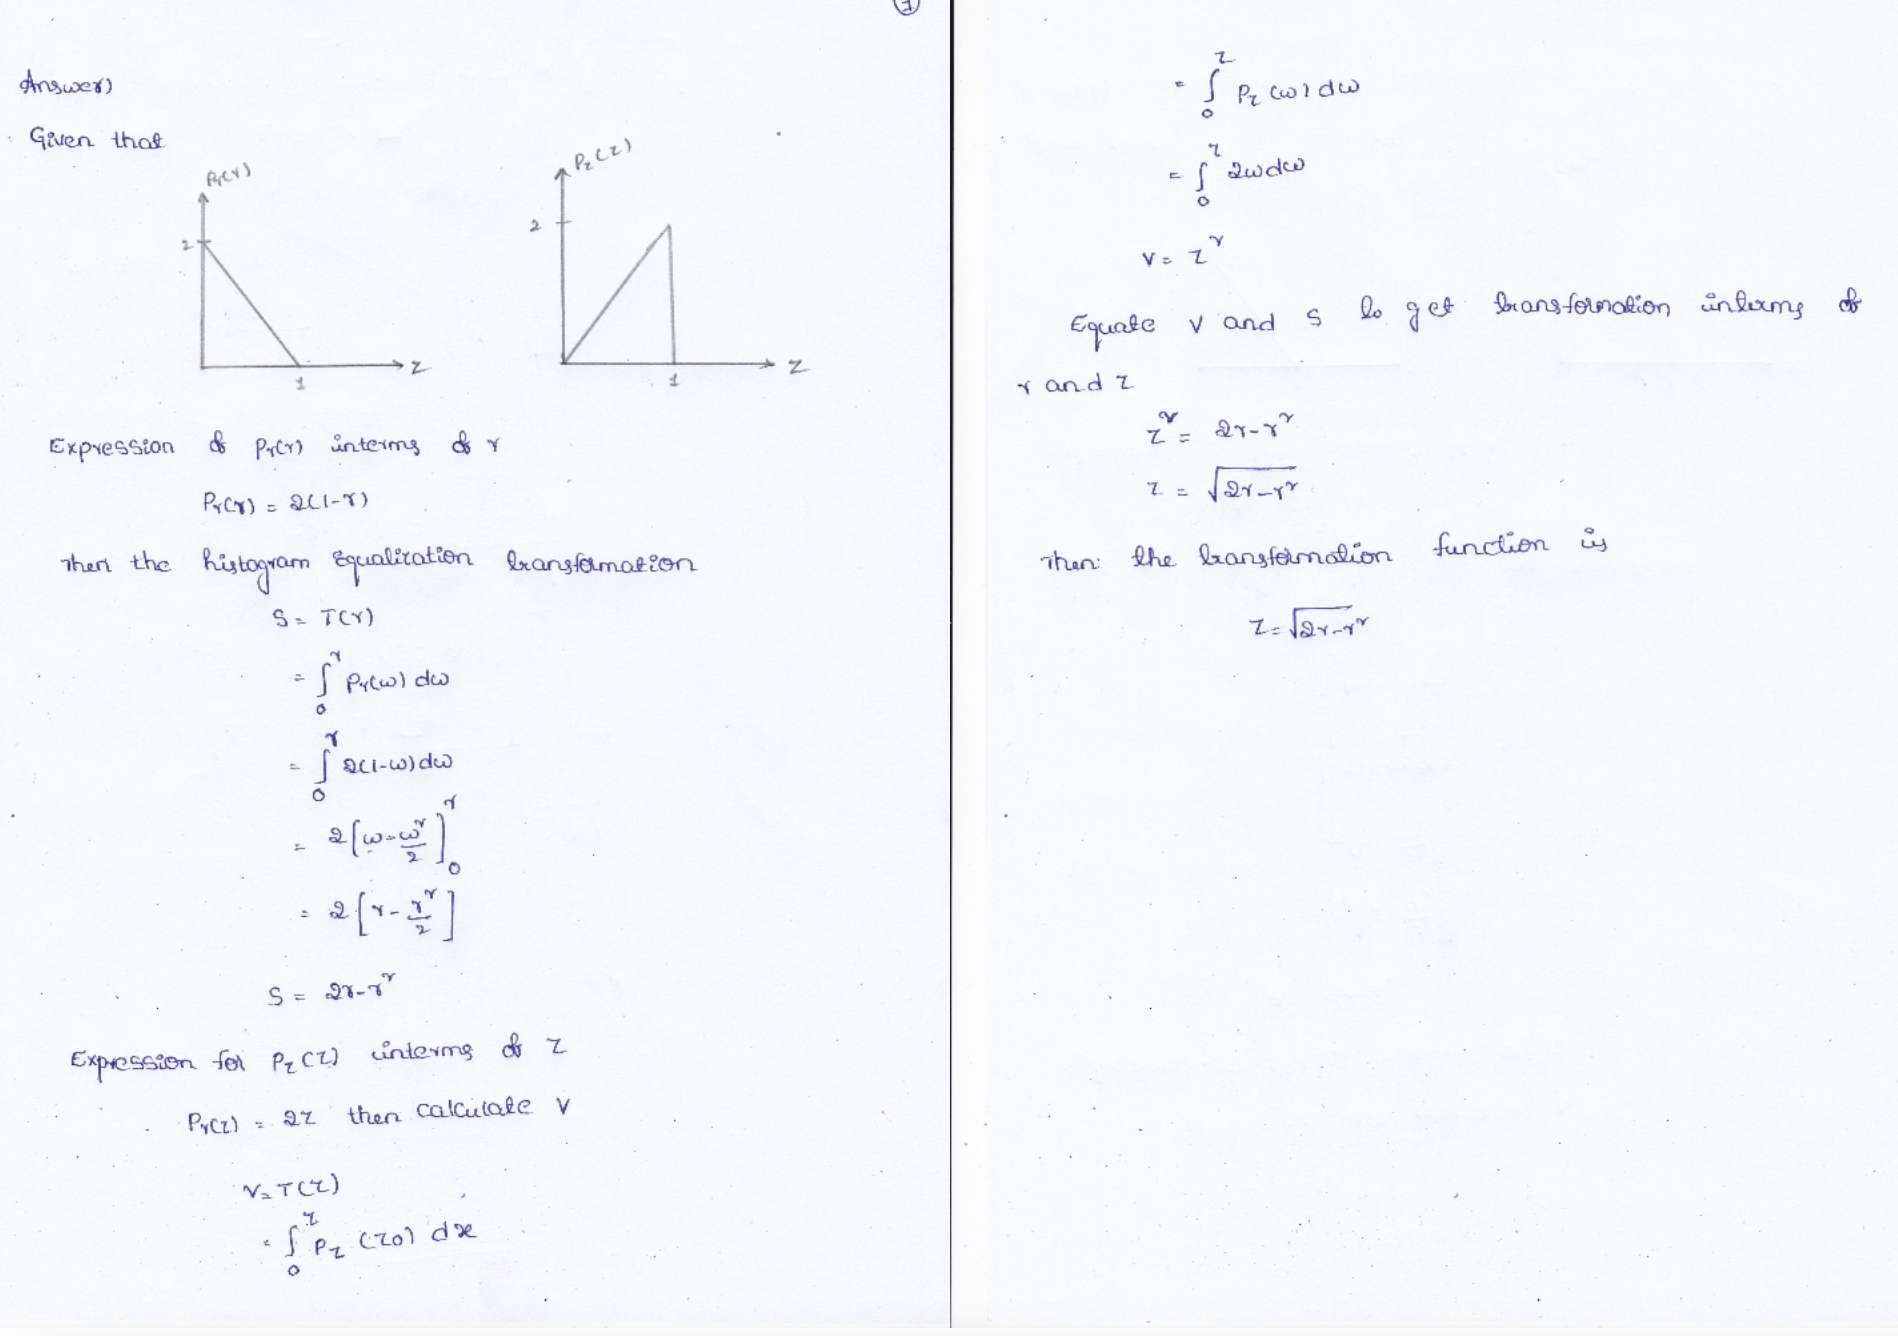 1
Answer)
Given that
Pr(r)
2
1
Z
Pz(z)
2
1
Z
Expression of Pr(r) interms of r
Pr(r) = 2(1-r)
Then the histogram Equalization transformation
S = T(r)
= ∫₀ʳ Pr(ω) dω
= ∫₀ʳ 2(1-ω)dω
= 2[ω-ω²/2]₀ʳ
= 2[r-r²/2]
S = 2r-r²
Expression for Pz(z) interms of z
Pr(z) = 2z then calculate v
V = T(z)
= ∫₀ᶻ Pz (z0) dx
= ∫₀ᶻ Pz (ω) dω
= ∫₀ᶻ 2ωdω
V = z²
Equate v and s to get transformation interms of
r and z
z² = 2r-r²
z = √2r-r²
Then the transformation function is
z = √2r-r²